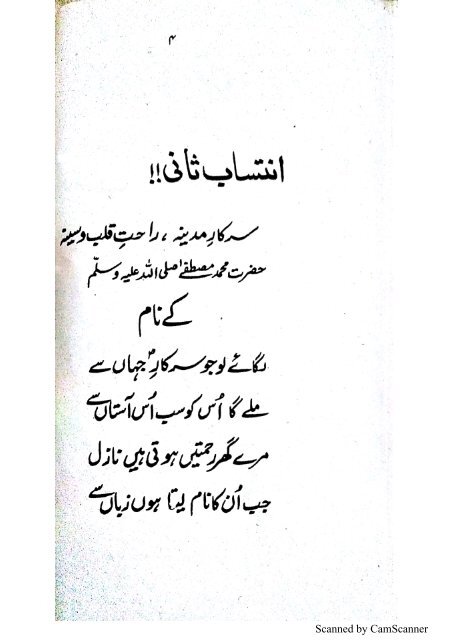 ۴
انتساب ثانی!!
سرکارِ مدینہ، راحتِ قلب و سینہ
حضرت محمد مصطفےٰ صلی اللہ علیہ وسلّم
کے نام
لگائے لو جو سرکارِؐ جہاں سے
ملے گا اُس کو سب اُس آستاں سے
مرے گھر رحمتیں ہوتی ہیں نازل
جب اُن کا نام لیتا ہوں زباں سے
Scanned by CamScanner